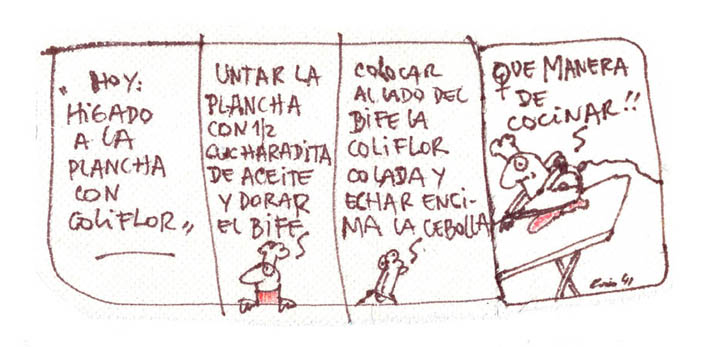 "HOY:
HIGADO
A LA
PLANCHA
CON
COLIFLOR"
UNTAR LA
PLANCHA
CON 1/2
CUCHARADITA
DE ACEITE
Y DORAR
EL BIFE
COLOCAR
AL LADO DEL
BIFE LA
COLIFLOR
COLADA Y
ECHAR ENCI-
MA LA CEBOLLA
QUE MANERA
DE
COCINAR!!